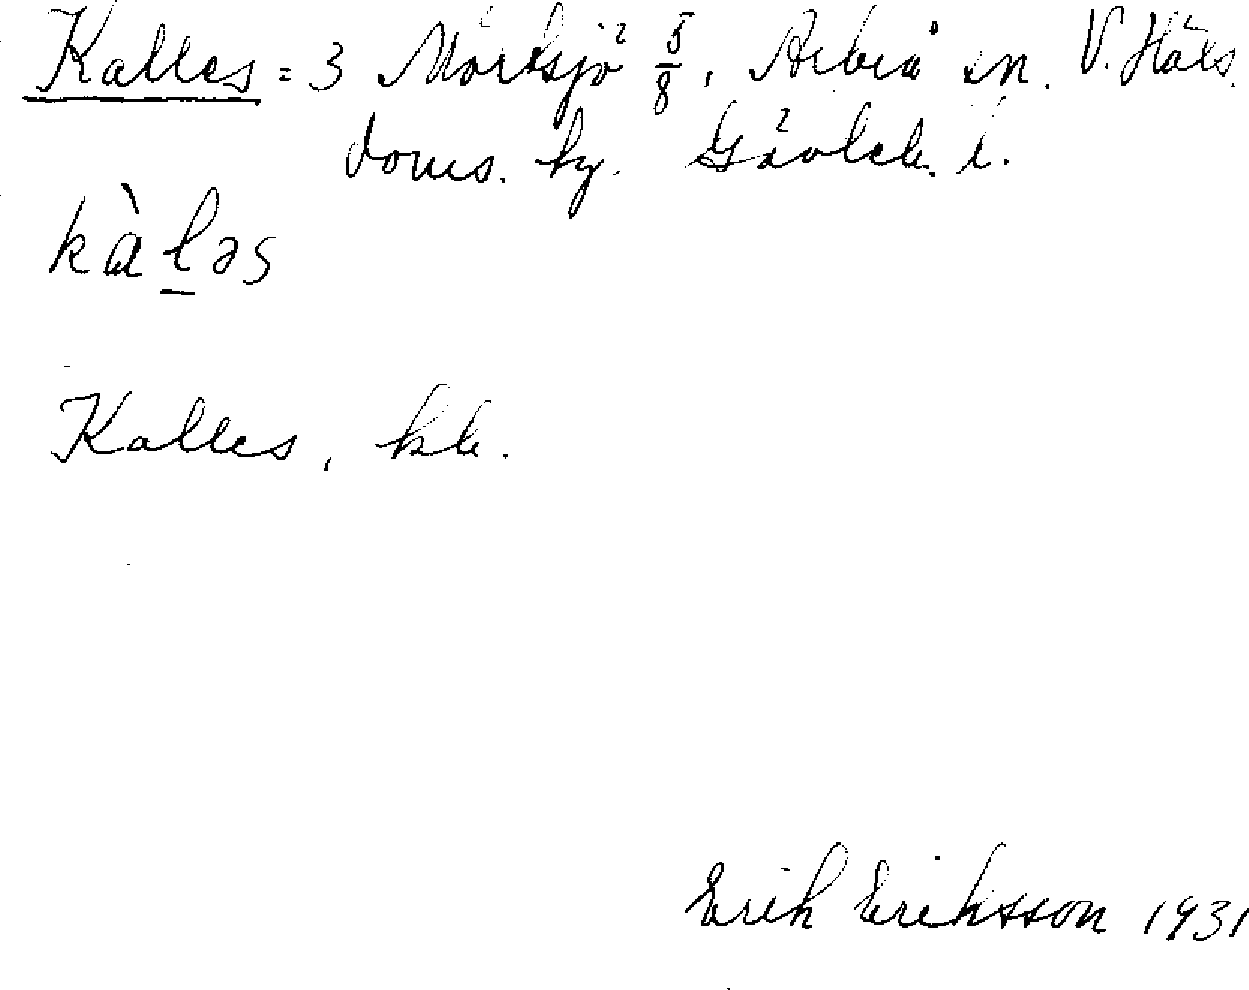 Kalles = 3 Mörtsjö 5/8, Arbrå sn. V. Häls.
doms. hg. Gävleb. l.
kàl̠əs
Kalles, hk.
Erik Eriksson 1931